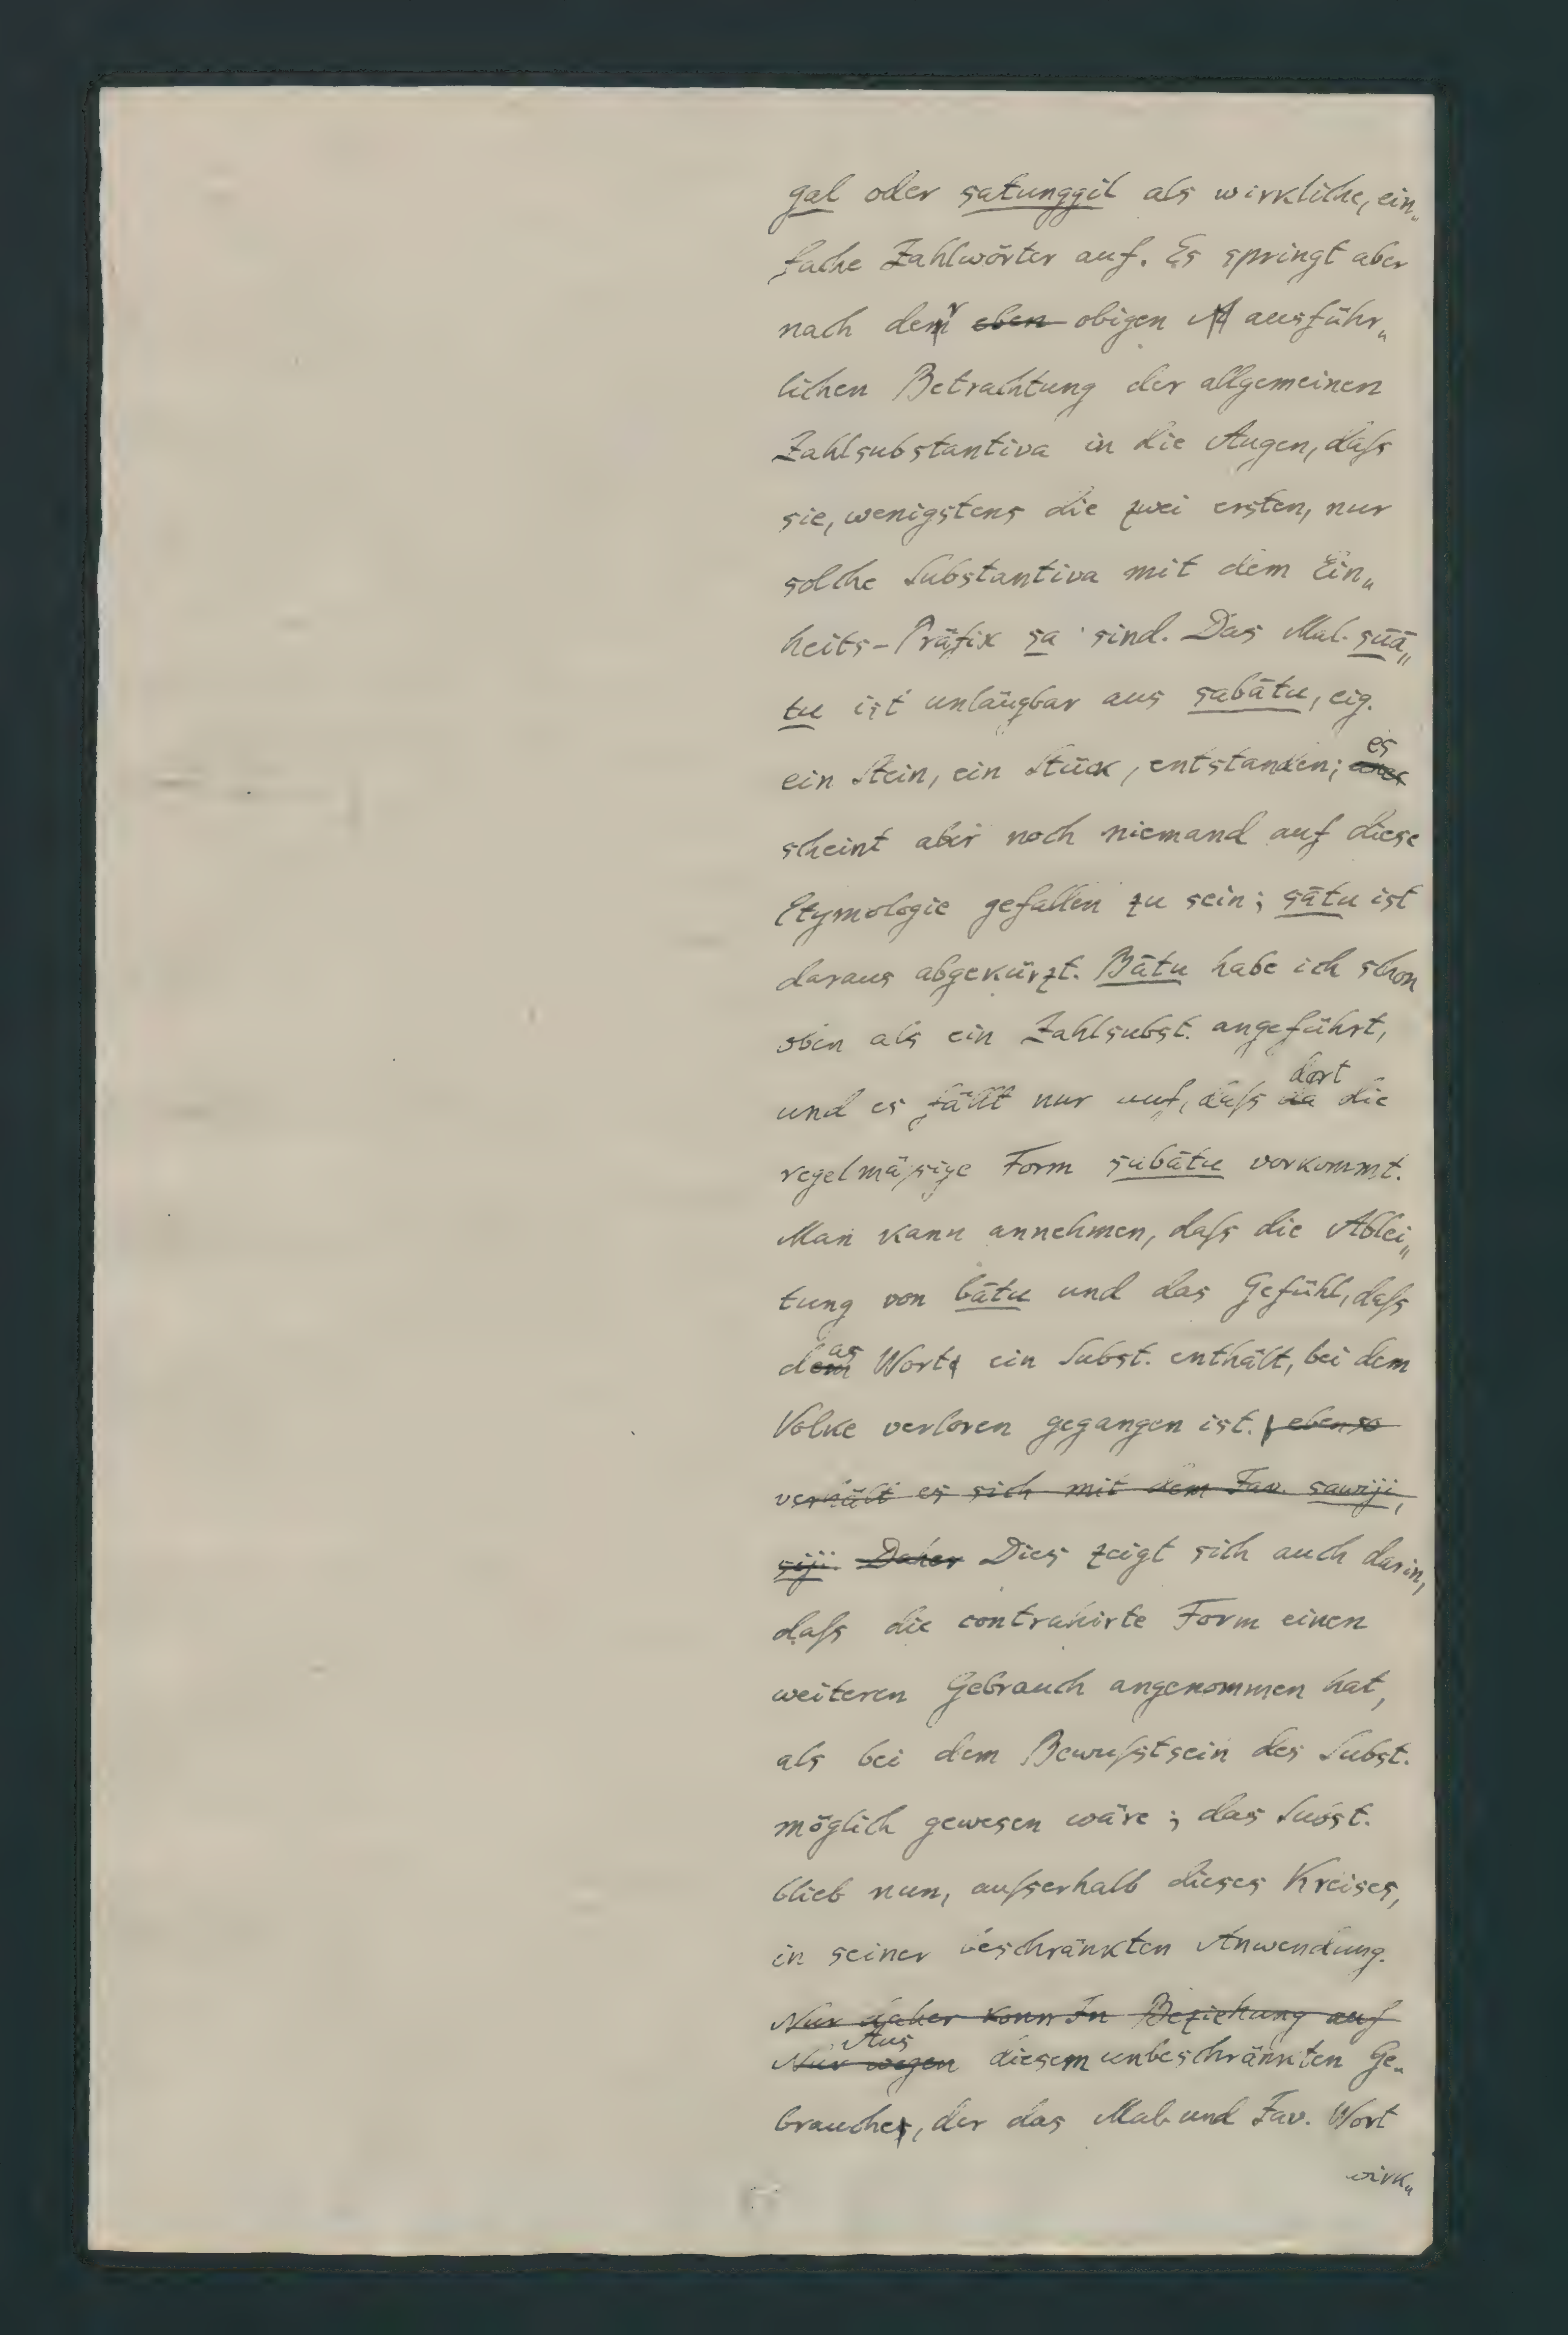 gal oder satunggil als wirkliche, ein„
fache Zahlwörter auf. Es springt aber
nach der eben obigen ausführ„
lichen Betrachtung der allgemeinen
Zahlsubstantiva in die Augen, daſs
sie, wenigstens die zwei ersten, nur
solche Substantiva mit dem Ein„
heits-Präfix sa sind. Das Mal. sūā„
tu ist unläugbar aus sabātu, eig.
ein Stein, ein Stück, entstanden; es
scheint aber noch niemand auf diese
Etymologie gefallen zu sein; sātu ist
daraus abgekürzt. Bātu habe ich schon
oben als ein Zahlsubst. angeführt,
und es fällt nur auf, daſs da dort die
regelmäſsige Form sabātu vorkommt.
Man kann annehmen, daſs die Ablei„
tung von bātu und das Gefühl, daſs
das Wort ein Subst. enthält, bei dem
Volke verloren gegangen ist. ebenso
verhält es sich mit dem Jav. sawiji,
siji. Daher Dies zeigt sich auch darin,
daſs die contrahirte Form einen
weiteren Gebrauch angenommen hat,
als bei dem Bewuſstsein des Subst.
möglich gewesen wäre; das Subst.
blieb nun, auſserhalb dieses Kreises,
in seiner beschränkten Anwendung.
Nur daher kann In Beziehung auf
Nur wegen Aus diesem unbeschränkten Ge„
brauche, der das Mal. und Jav. Wort
wirk„